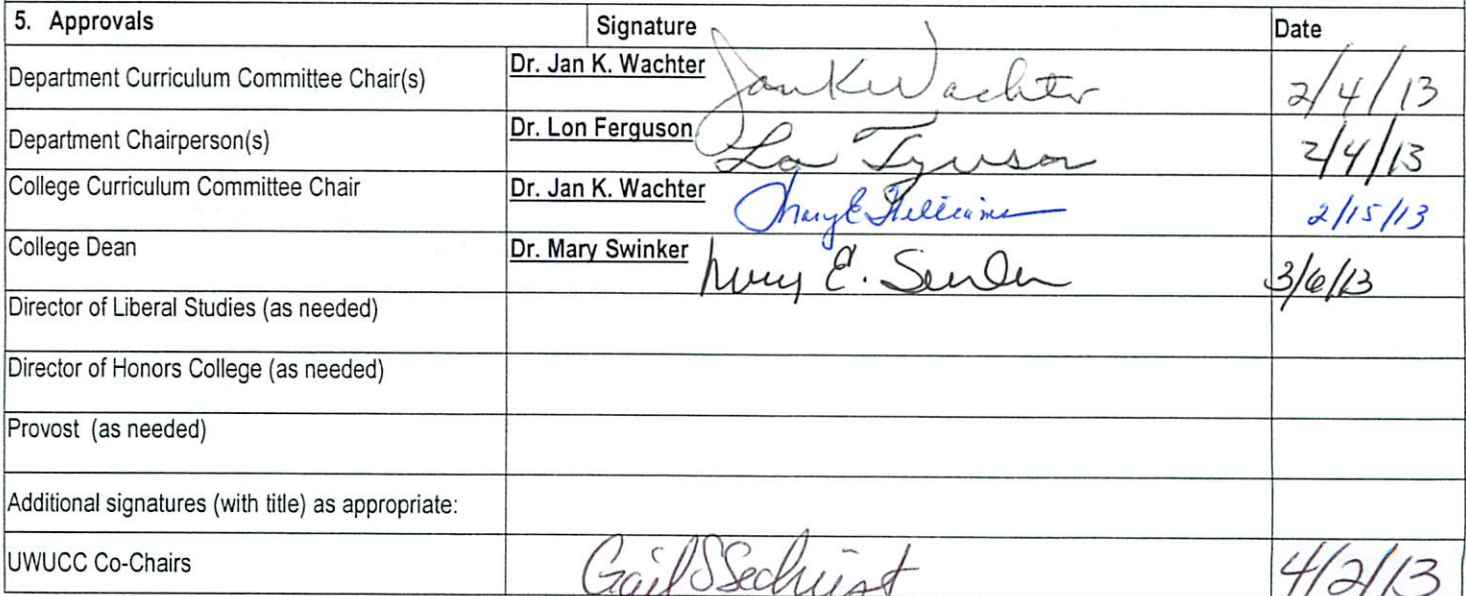 5. Approvals Signature Date
Department Curriculum Committee Chair(s) Dr. Jan K. Wachter Jan K Wachter 2/4/13
Department Chairperson(s) Dr. Lon Ferguson 2/4/13
College Curriculum Committee Chair Dr. Jan K. Wachter Mary E Williams 2/15/13
College Dean Dr. Mary Swinker Mary E. Swinker 3/6/13
Director of Liberal Studies (as needed)
Director of Honors College (as needed)
Provost (as needed)
Additional signatures (with title) as appropriate:
UWUCC Co-Chairs Gail S Sechrist 4/2/13